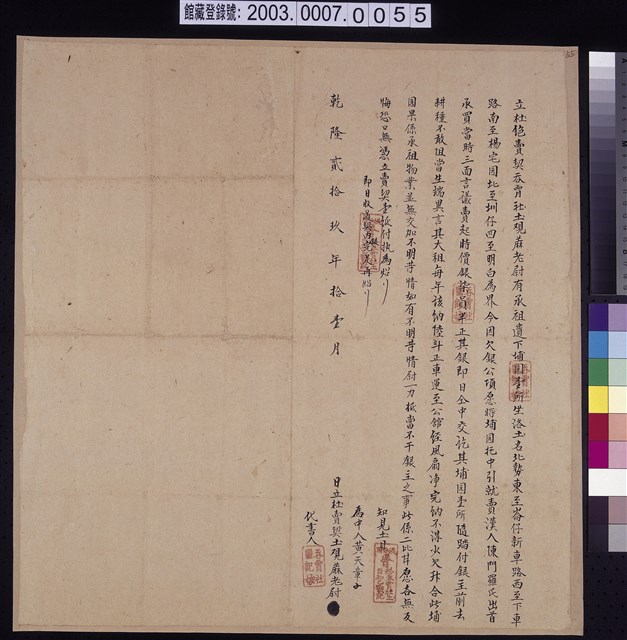 館藏登錄號: 2003.0007.0055
55
立杜絶賣契吞霄社土覡蔴老尉有承祖遺下埔園壹所坐洛土名北勢東至崙仔新車路西至下車
路南至楊宅園北至圳仔四至明白為界今因欠銀公項愿將埔園托中引就賣漢人陳門羅氏出首
承買當時三面言議賣起時價銀柒員半正其銀即日仝中交訖其埔園壹所隨踏付銀主前去
耕種不敢阻當生端異言其大租每年該納陸斗正車運至公館經風扇净完納不得少欠升合此埔
園果係承祖物業並無交加不明等情如有不明等情尉一力抵當不干銀主之事此係二比甘愿各無反
悔恐口無憑立賣契壹紙付執為炤
即日收過契內銀完足再炤
乾隆貳拾玖年拾壹月
日立杜賣契土覡蔴老尉
知見土目
為中人黃天章
代書人